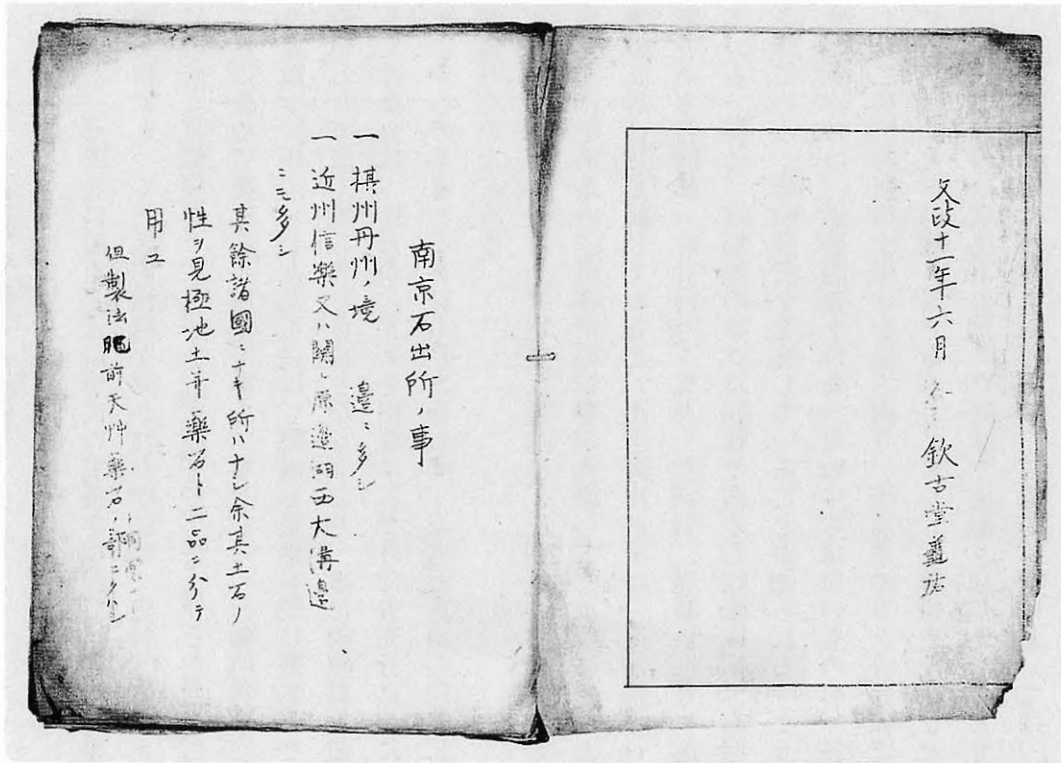 文政十一年六月 欽古堂龜祐
南京石出所ノ事
一 摂州丹州ノ境 邉ニ多シ
一 近州信楽又ハ関ヶ原邉湖西大溝邉
ニモ多シ
其餘諸國ニナキ所ハナシ余其土石ノ
性ヲ見極地土并薬石ト二品ニ分テ
用ユ
但製法肥前天艸薬石ノ部ニクハシ